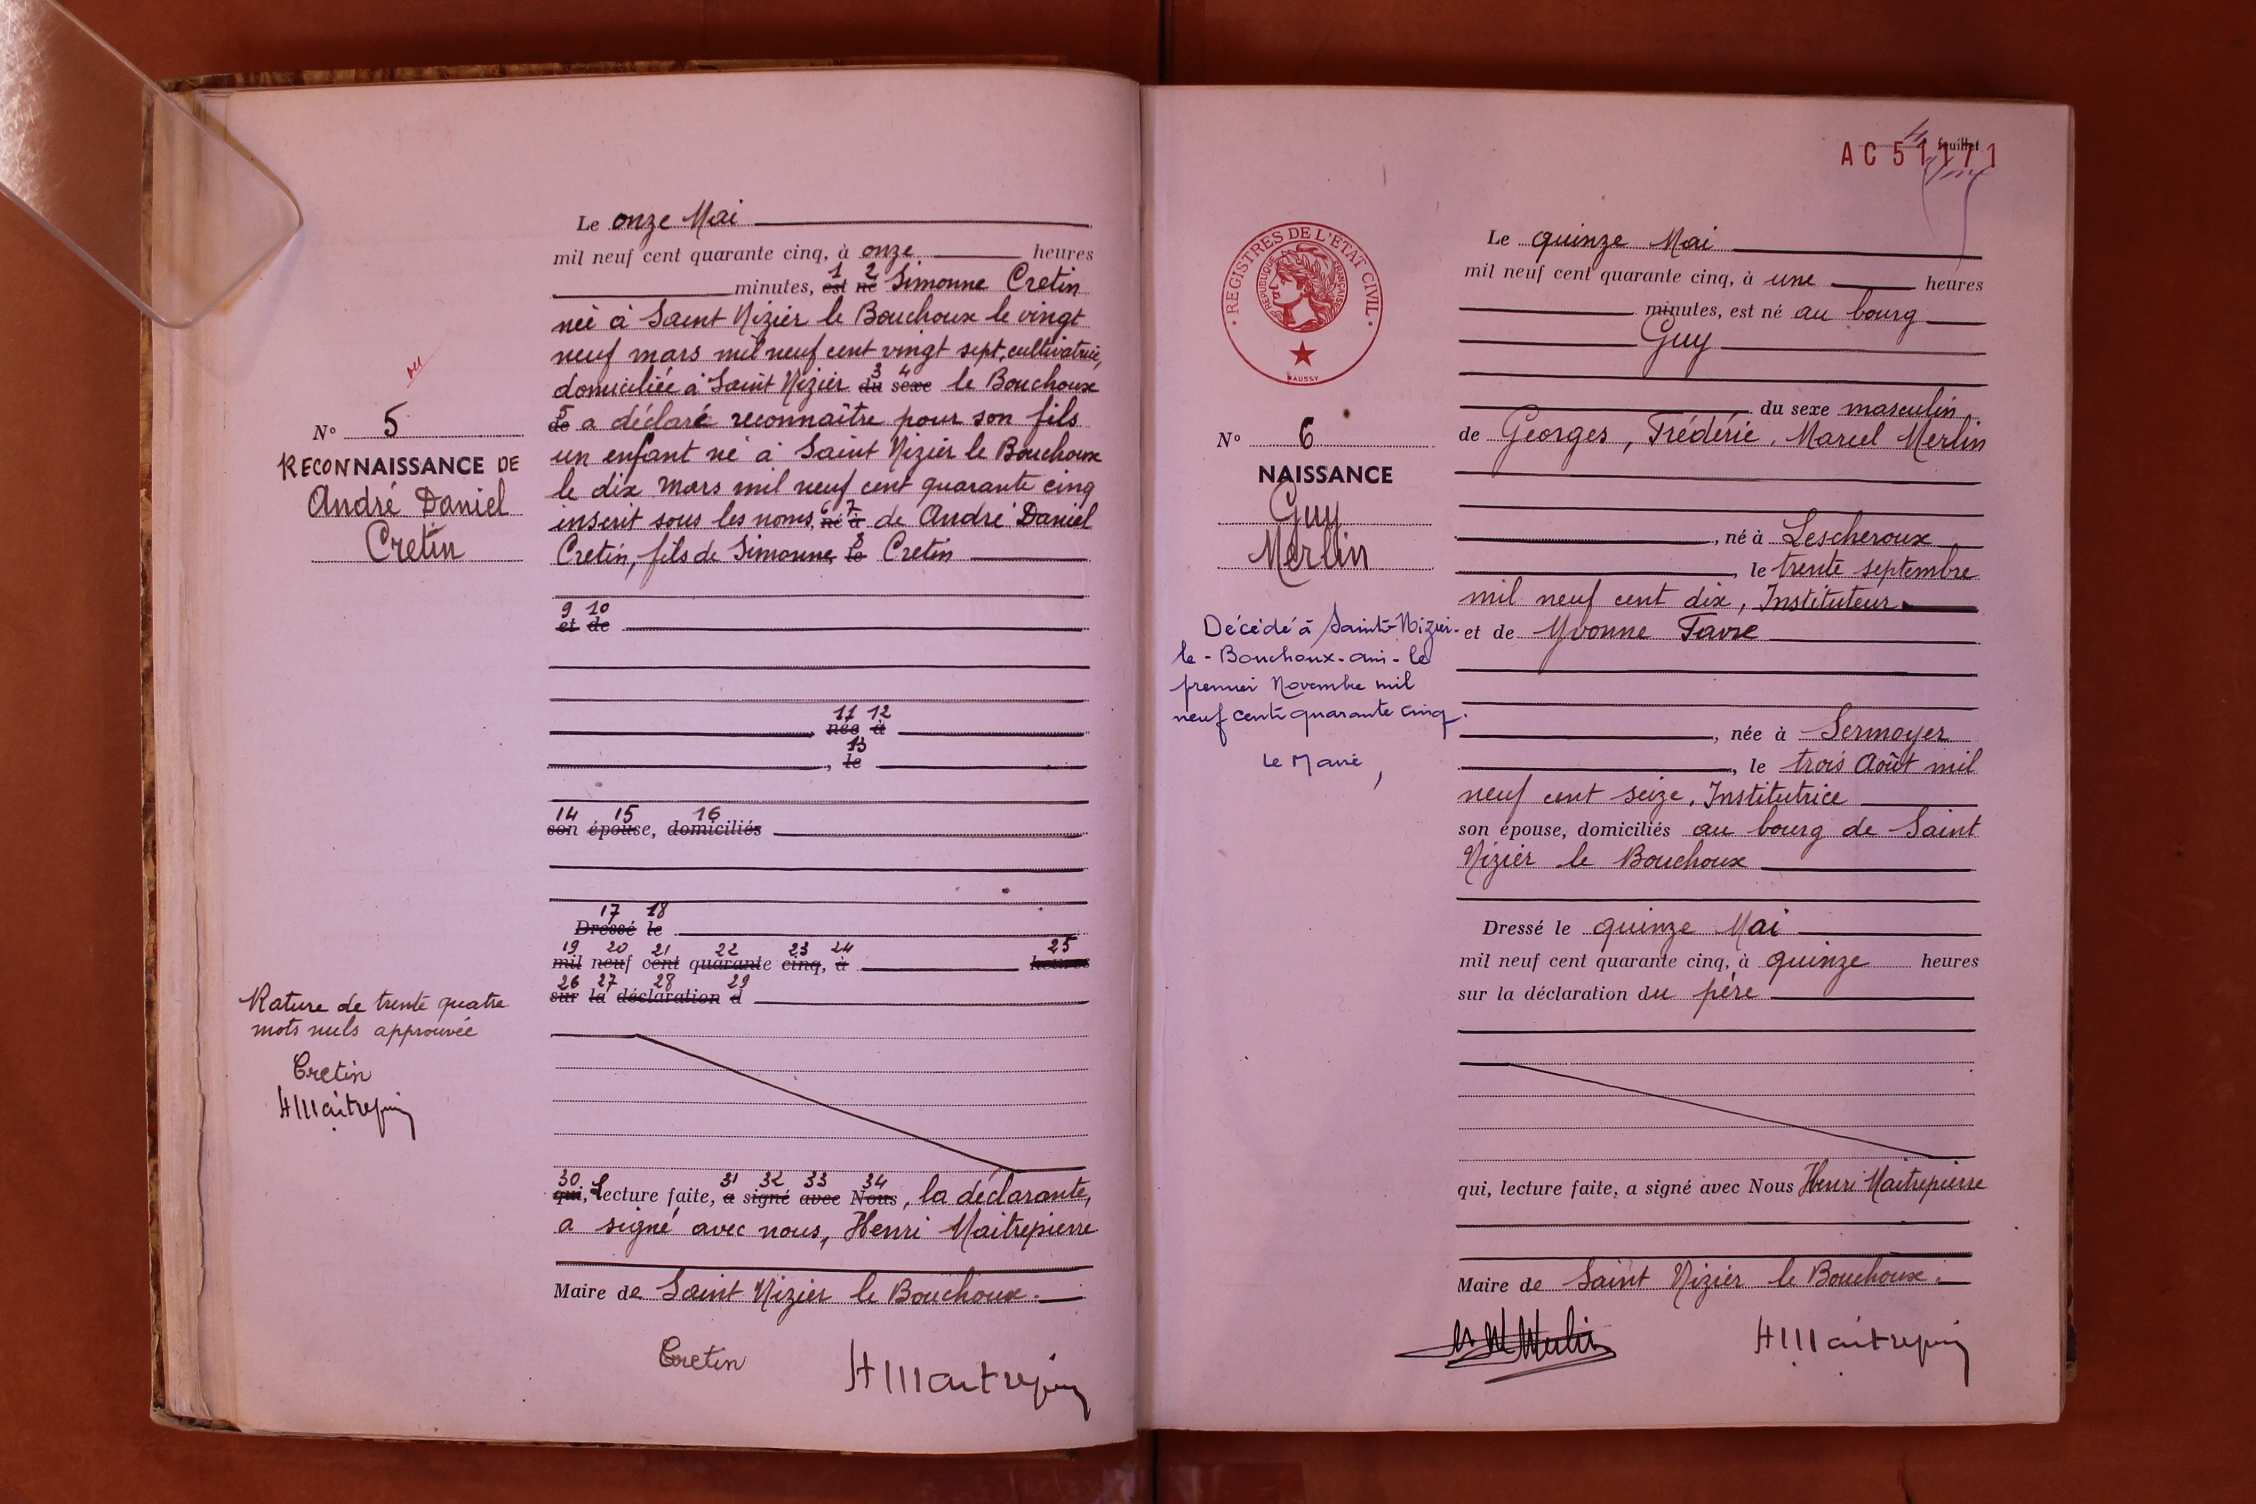 Le onze Mai
mil neuf cent quarante cinq, à onze heures
1 2
minutes, est né Simonne Cretin
née à Saint Nizier le Bouchoux le vingt
neuf mars mil neuf cent vingt sept, cultivatrice,
3 4
domiciliée à Saint Nizier du sexe le Bouchoux
5
de a déclaré reconnaître pour son fils
un enfant né à Saint Nizier le Bouchoux
le dix mars mil neuf cent quarante cinq
6 7
inscrit sous les noms, né à de André Daniel
8
Cretin, fils de Simonne, le Cretin
9 10
et de
11 12
, née à
13
, le
14 15 16
son épouse, domiciliés
17 18
Dressé le
19 20 21 22 23 24 25
mil neuf cent quarante cinq, à heures
26 27 28 29
sur la déclaration d
30 31 32 33 34
qui, Lecture faite, a signé avec Nous, la déclarante,
a signé avec nous, Henri Maitrepierre
Maire de Saint Nizier le Bouchoux.
Cretin
HMaitrepierre
vu
N° 5
RECONNAISSANCE DE
André Daniel
Cretin
Rature de trente quatre
mots nuls approuvée
Cretin
HMaitrepierre
feuillet
AC 51171
REGISTRES DE L'ÉTAT CIVIL
RÉPUBLIQUE FRANÇAISE
Le quinze Mai
mil neuf cent quarante cinq, à une heures
minutes, est né au bourg
Guy
du sexe masculin
de Georges, Frédéric, Marcel Merlin
, né à Lescheroux
, le trente septembre
mil neuf cent dix, Instituteur
et de Yvonne Favre
, née à Sermoyer
, le trois Août mil
neuf cent seize, Institutrice
son épouse, domiciliés au bourg de Saint
Nizier le Bouchoux
Dressé le quinze Mai
mil neuf cent quarante cinq, à quinze heures
sur la déclaration du père
qui, lecture faite, a signé avec Nous Henri Maitrepierre
Maire de Saint Nizier le Bouchoux.
Merlin
HMaitrepierre
N° 6
NAISSANCE
Guy
Merlin
Décédé à Saint-Nizier-
le-Bouchoux-ain-le
premier Novembre mil
neuf cent quarante cinq.
Le Maire,